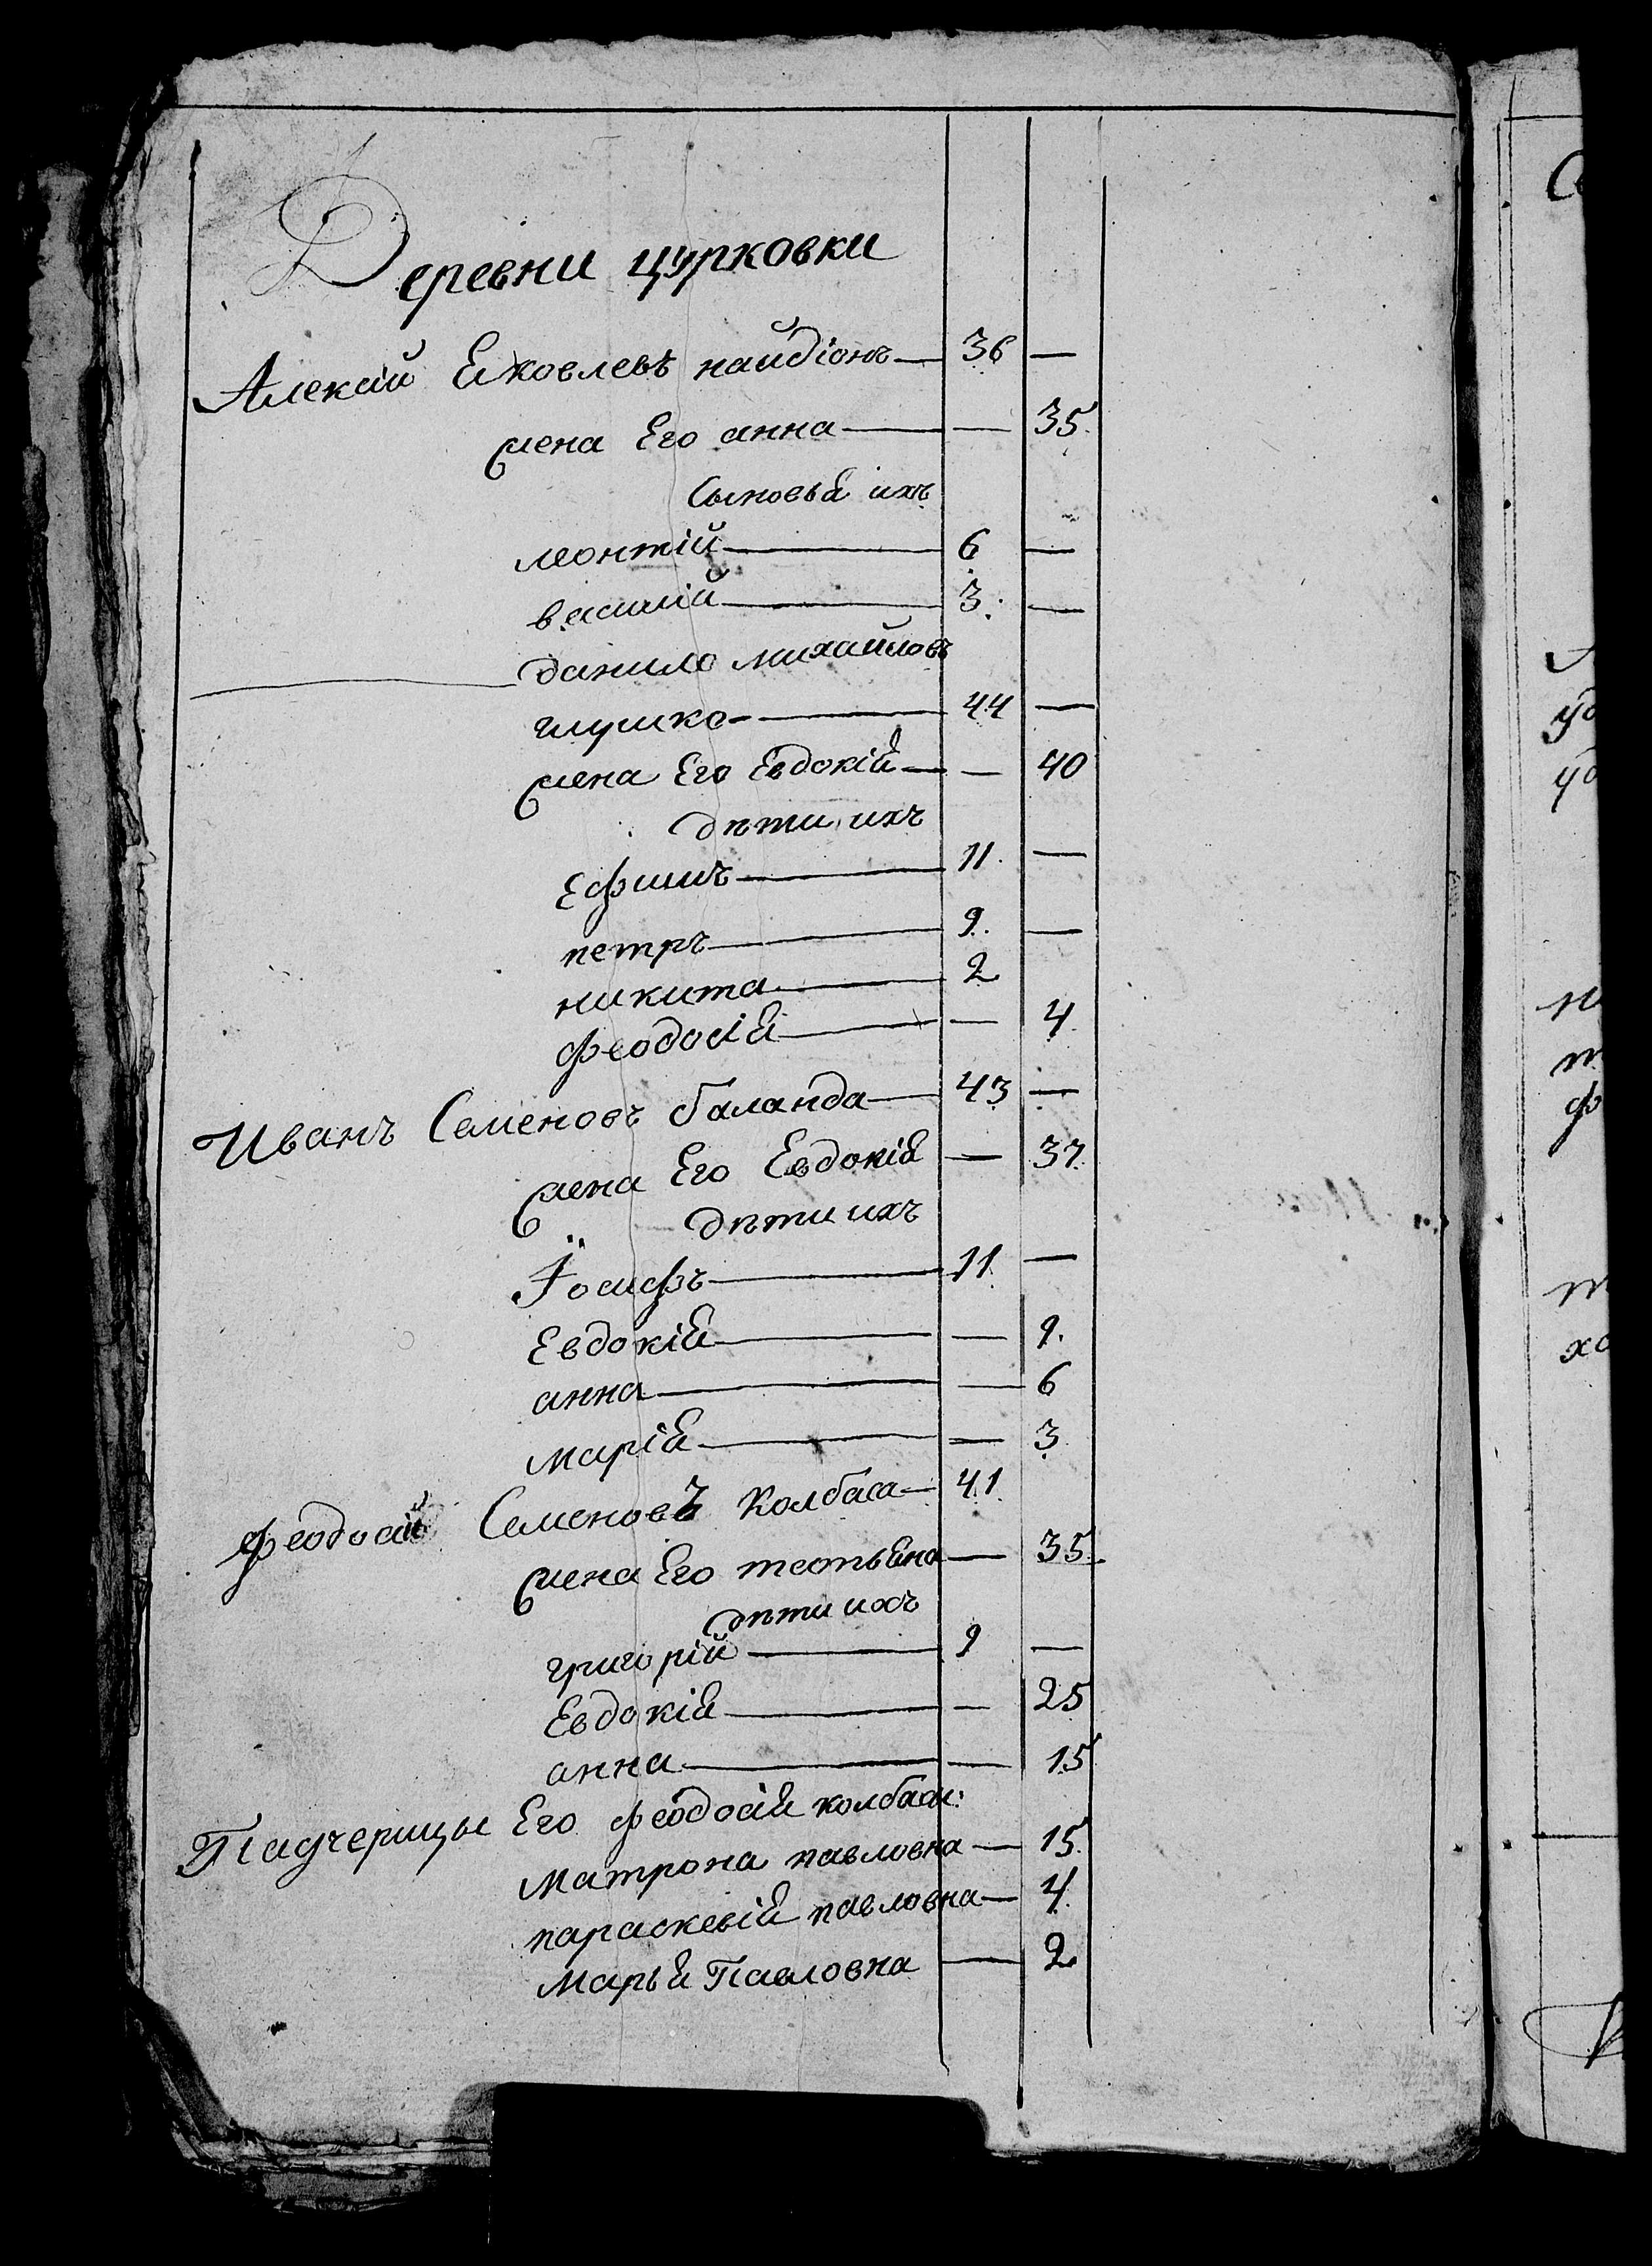 Деревни цурковки
Алексій Яковлевъ найдіонъ — 36 —
жена Его анна — — 35.
Сыновья ихъ
леонтій — 6 —
василій — 3. —
данило михайловъ
глушко — 44 —
жена Его Евдокія — — 40
дѣти ихъ
Ефимъ — 11. —
петръ — 9. —
никита — 2
феодосія — — 4.
Иванъ Семеновъ баланда — 43 —
жена Его Евдокія — 37.
дѣти ихъ
Іосифъ — 11. —
Евдокія — — 9.
анна — — 6
марія — — 3.
феодосій Семеновъ Колбаса — 41
жена Его татьяна — 35.
дѣти ихъ
григорій — 9 —
Евдокія — — 25
анна — — 15
Падчерицы Его феодосія колбасы:
Матрона павловна — 15.
параскевія павловна — 4.
Марья Павловна — 2